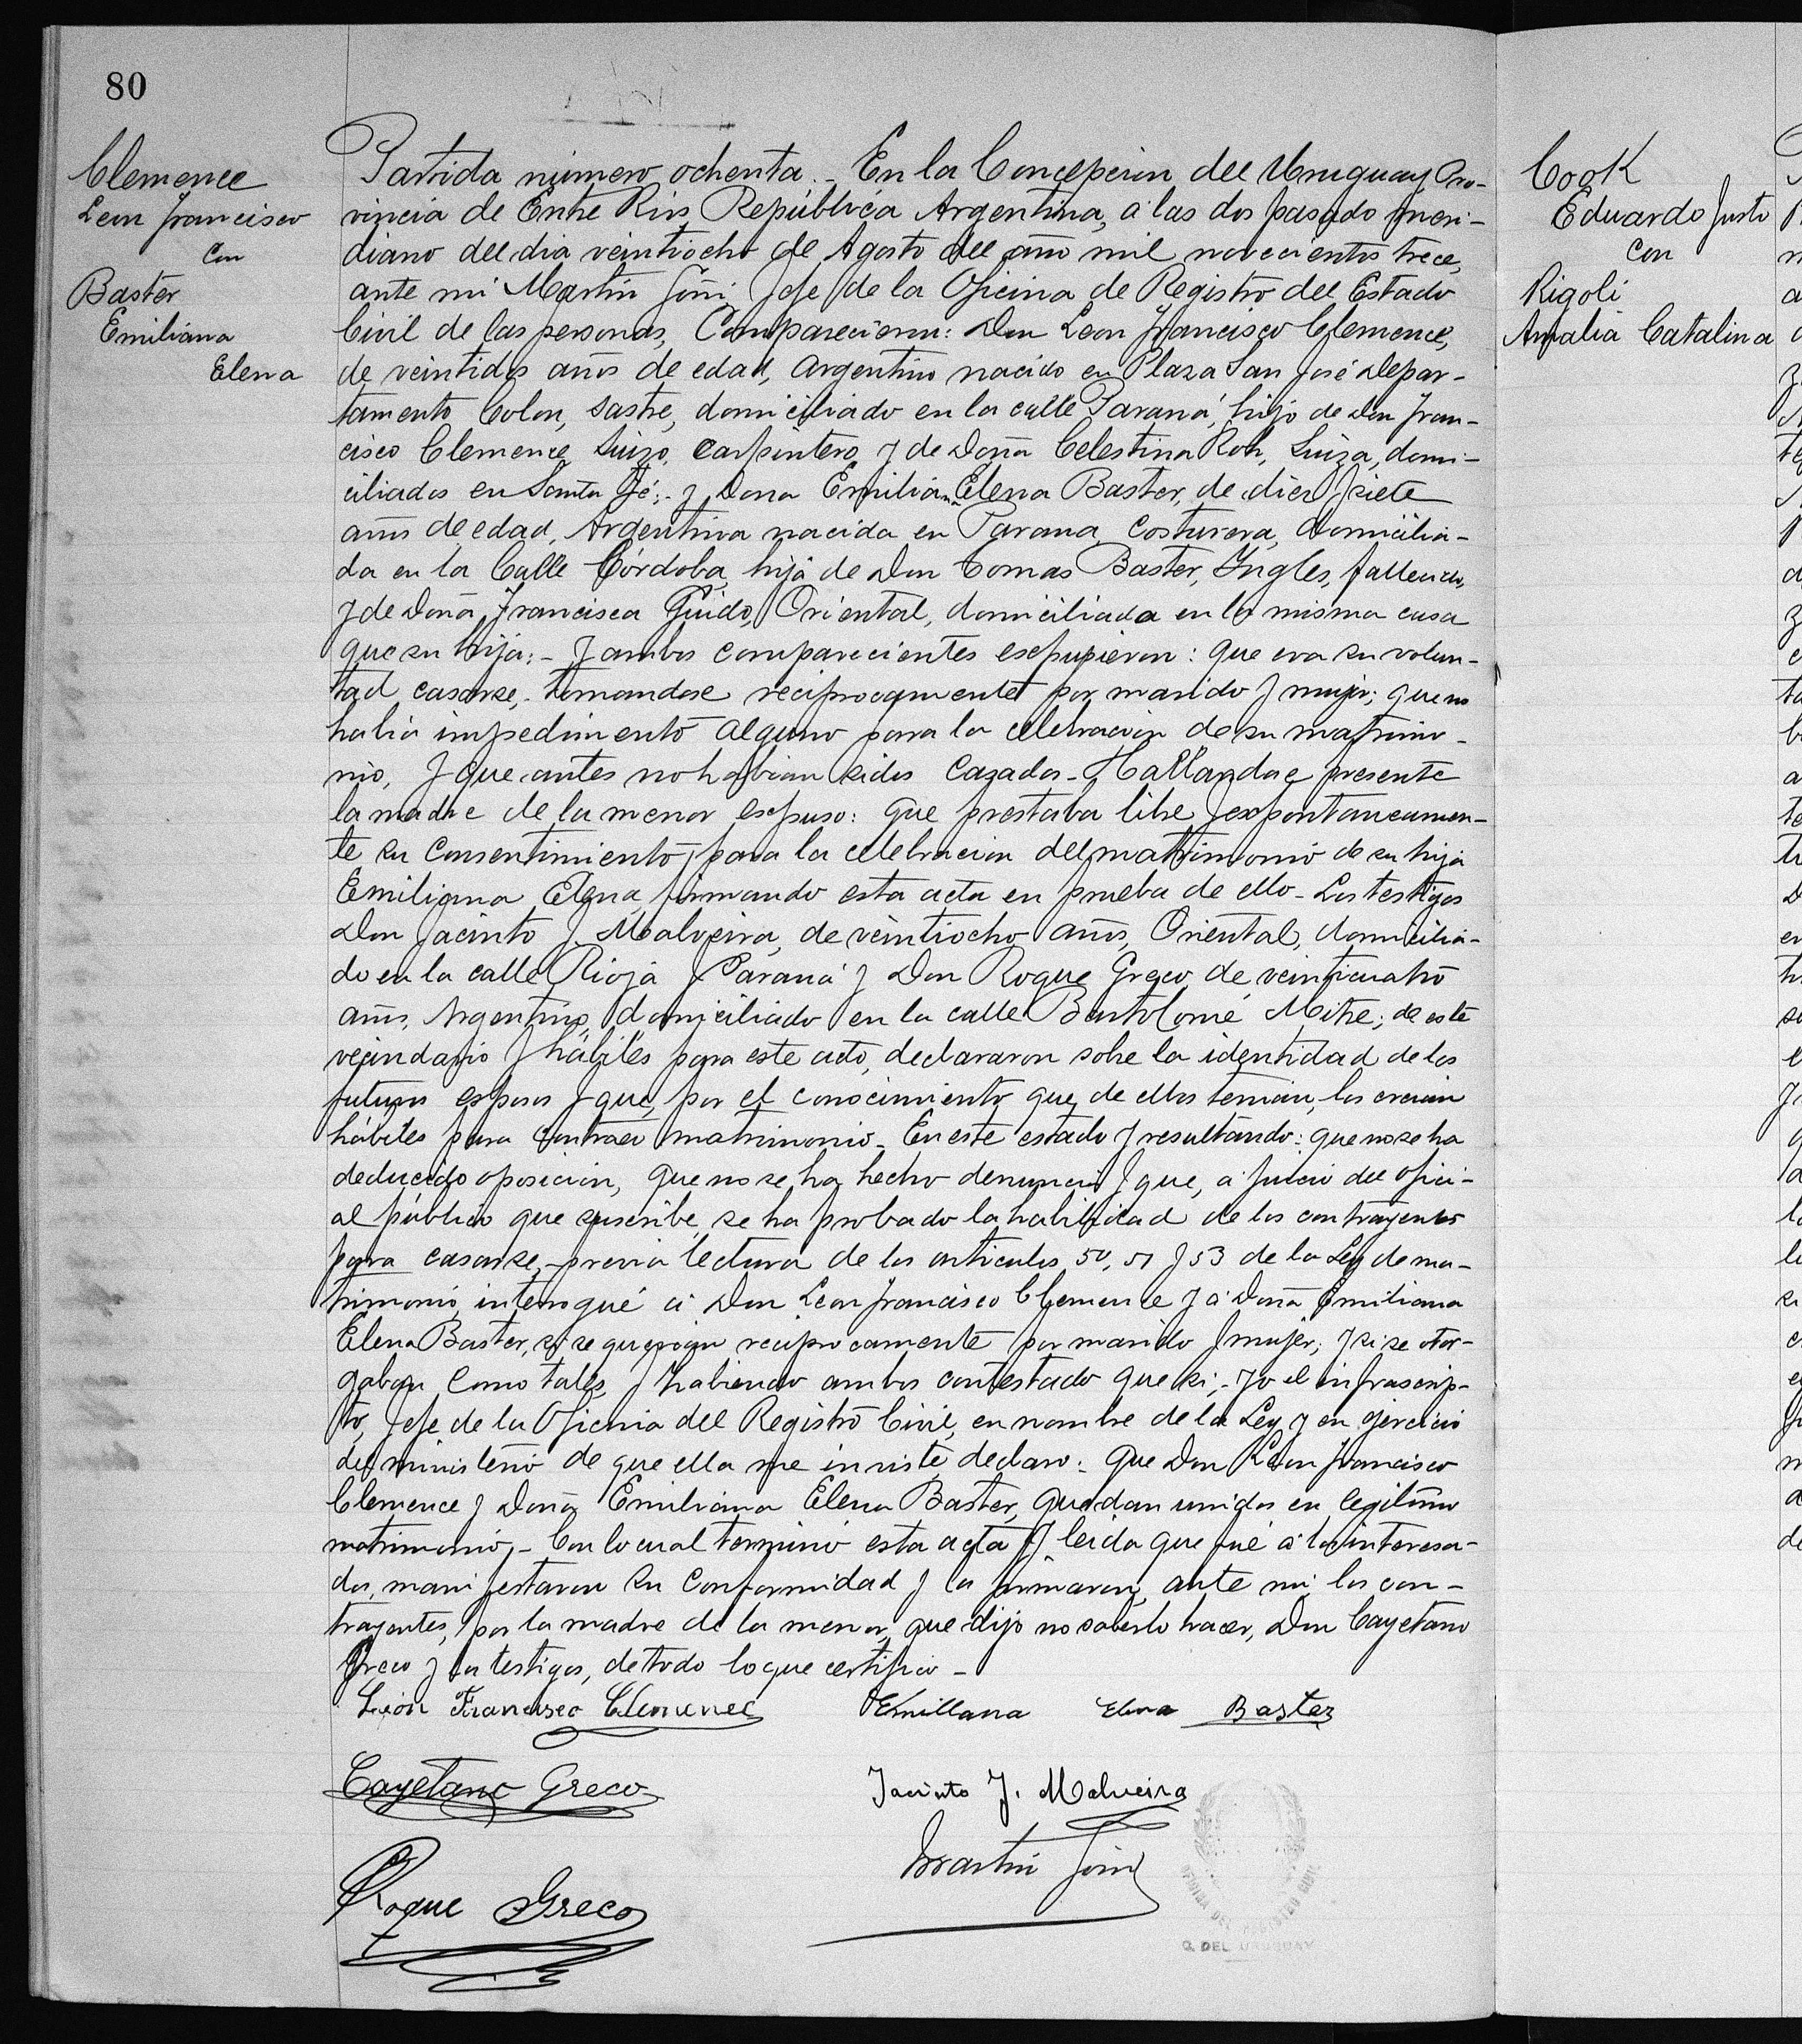 80
Clemence
Leon Francisco
con
Baster
Emiliana
Elena
Partida número ochenta.- En la Concepción del Uruguay Pro-
vincia de Entre Rios República Argentina, á las dos pasado meri-
diano del dia veintiocho de Agosto del año mil novecientos trece,
ante mi Martín Joñi, Jefe de la Oficina de Registro del Estado
Civil de las personas, Comparecieron: Don Leon Francisco Clemence,
de veintidos años de edad, Argentino nacido en Plaza San José Depar-
tamento Colon, sastre, domiciliado en la calle Paraná, hijo de Don Fran-
cisco Clemence, Suizo, carpintero y de Doña Celestina Roh, Suiza, domi-
ciliados en Santa Fé;- y Doña Emiliana Elena Baster, de diez y siete
años de edad, Argentina nacida en Parana, costurera, domicilia-
da en la Calle Córdoba, hija de Don Tomas Baster, Ingles, fallecido,
y de Doña Francisca Guido, Oriental, domiciliada en la misma casa
que su hija:- y ambos comparecientes expusieron: que era su volun-
tad casarse, tomandose reciprocamente por marido y mujer; que no
habia impedimento alguno para la celebracion de su matrimo-
nio, y que antes no habian sidos cazados- Hallandose presente
la madre de la menor expuso: que prestaba libre y expontaneamen-
te su consentimiento para la celebracion del matrimonio de su hija
Emiliana Elena, firmando esta acta en prueba de ello- Los testigos
Don Jacinto J. Malveira, de veintiocho años, Oriental, domicilia-
do en la calle Rioja y Paraná y Don Roque Greco, de veinticuatro
años, Argentino, domiciliado en la calle Bartolomé Mitre; de este
vecindario y hábiles para este acto, declararon sobre la identidad de los
futuros esposos y que, por el conocimiento que de ellos tenian, los creian
hábiles para contraer matrimonio- En este estado y resultando: que no se ha
deducido oposicion, que no se ha hecho denuncia y que, a juicio del ofici-
al público que suscribe, se ha probado la habilidad de los contrayentes
para casarse,- previa lectura de los articulos 50, 51 y 53 de la Ley de ma-
trimonio, interrogué á Don Leon Francisco Clemence y á Doña Emiliana
Elena Baster, si se querian reciprocamente por marido y mujer; y si se otor-
gaban como tales, y habiendo ambos contestado que si;- yo el infrascrip-
to, Jefe de la Oficina del Registro Civil, en nombre de la Ley y en ejercicio
del ministerio de que ella me inviste, declaro: Que Don Leon Francisco
Clemence y Doña Emiliana Elena Baster, quedan unidos en legitimo
matrimonio,- Con lo cual terminó esta acta y leida que fué á los interesa-
dos, manifestaron su conformidad y la firmaron, ante mi, los con-
trayentes, por la madre de la menor, que dijo no saberlo hacer, Don Cayetano
Greco y los testigos, de todo lo que certifico-
León Francisco Clemence
Emillana Elena Baster
Cayetano Greco
Jacinto J. Malveira
Roque Greco
Martín Joñi
C. DEL URUGUAY
Cook
Eduardo Justo
con
Rigoli
Amalia Catalina